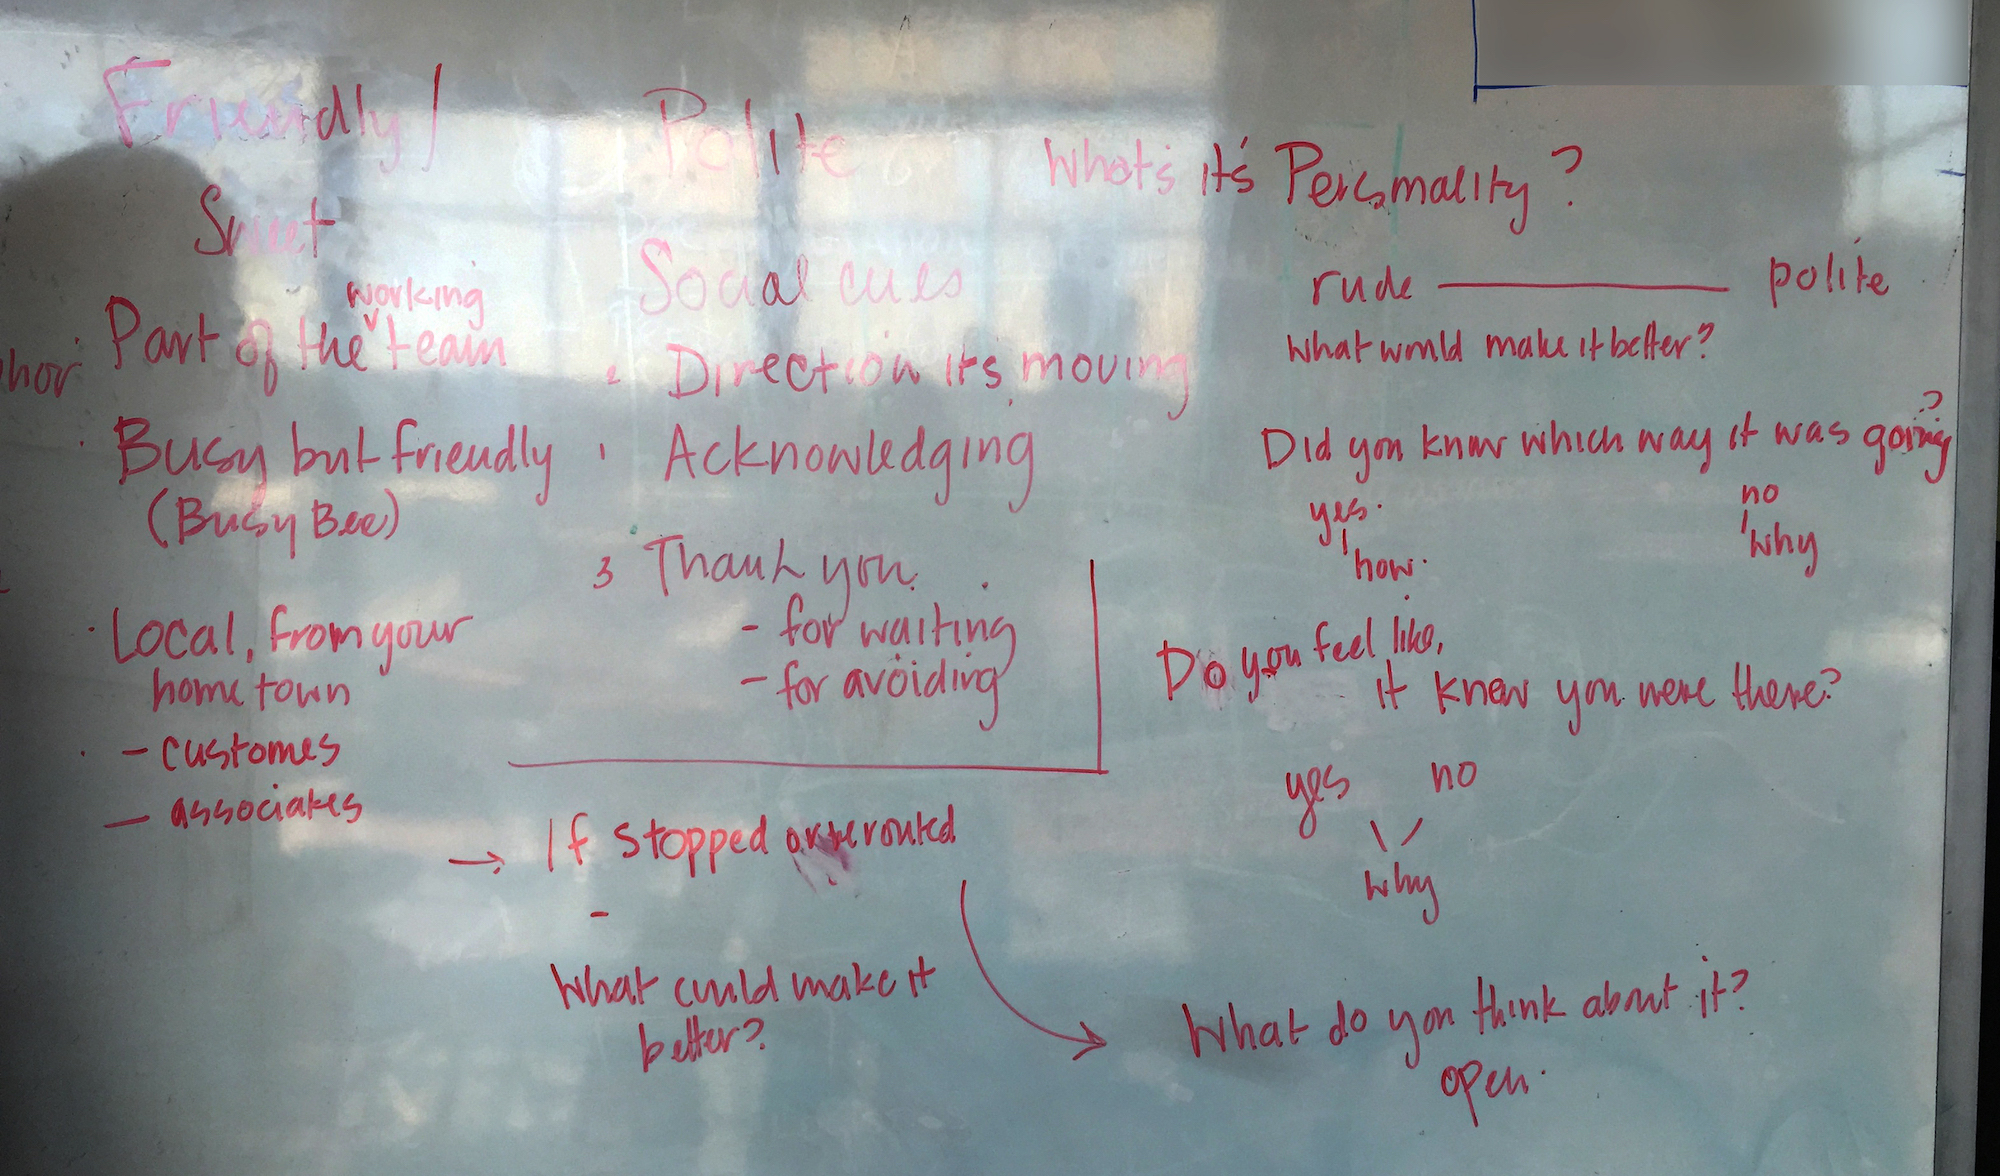 Friendly/
Sweet
Part of the working team
Busy but friendly
(Busy Bee)
Local, from your
home town
- customes
- associates
Polite
Social cues
Direction its moving
Acknowledging
3 Thank you
- for waiting
- for avoiding
→ If stopped or rerouted
-
What could make it
better?
What's it's Personality?
rude ——— polite
What would make it better?
Did you know which way it was going?
yes. no
how. why
Do you feel like,
it knew you were there?
yes no
why
What do you think about it?
open.